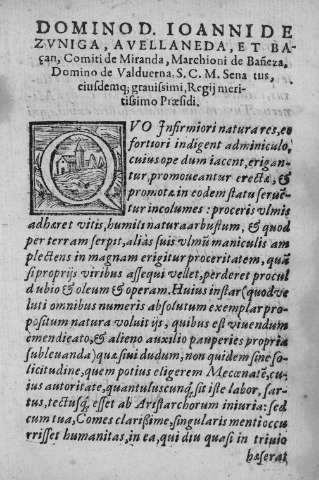 DOMINO D. IOANNI DE
ZVNIGA, AVELLANEDA, ET BA-
çan, Comiti de Miranda, Marchioni de Bañeza,
Domino de Valduerna. S. C. M. Sena tus,
eiusdemq; grauissimi, Regij meri-
tissimo Præsidi.
QVO Infirmiori natura res, eo
fortiori indigent adminiculo,
cuius ope dum iacent, erigan-
tur, promoueantur erectæ, &
promotæ in eodem statu serue-
tur incolumes: proceris vlmis
adhæret vitis, humilis natura arbustum, & quod
per terram serpit, aliàs suis vlmũ maniculis am
plectens in magnam erigitur proceritatem, quã
si proprijs viribus assequi vellet, perderet procul
dubio & oleum & operam. Huius instar (quod ve
luti omnibus numeris absolutum exemplar pro-
positum natura voluit ijs, quibus est viuendum
emendicato, & alieno auxilio pauperies propria
subleuanda) quæsiui dudum, non quidem sine so-
licitudine, quem potius eligerem Mecœnatẽ, cu-
ius autoritate, quantuluscunq; sit iste labor, sar-
tus, tectusq; esset ab Aristarchorum iniuria: sed
cum tua, Comes clarissime, singularis menti occu
rrisset humanitas, in ea, qui diu quasi in triuio
hæserat